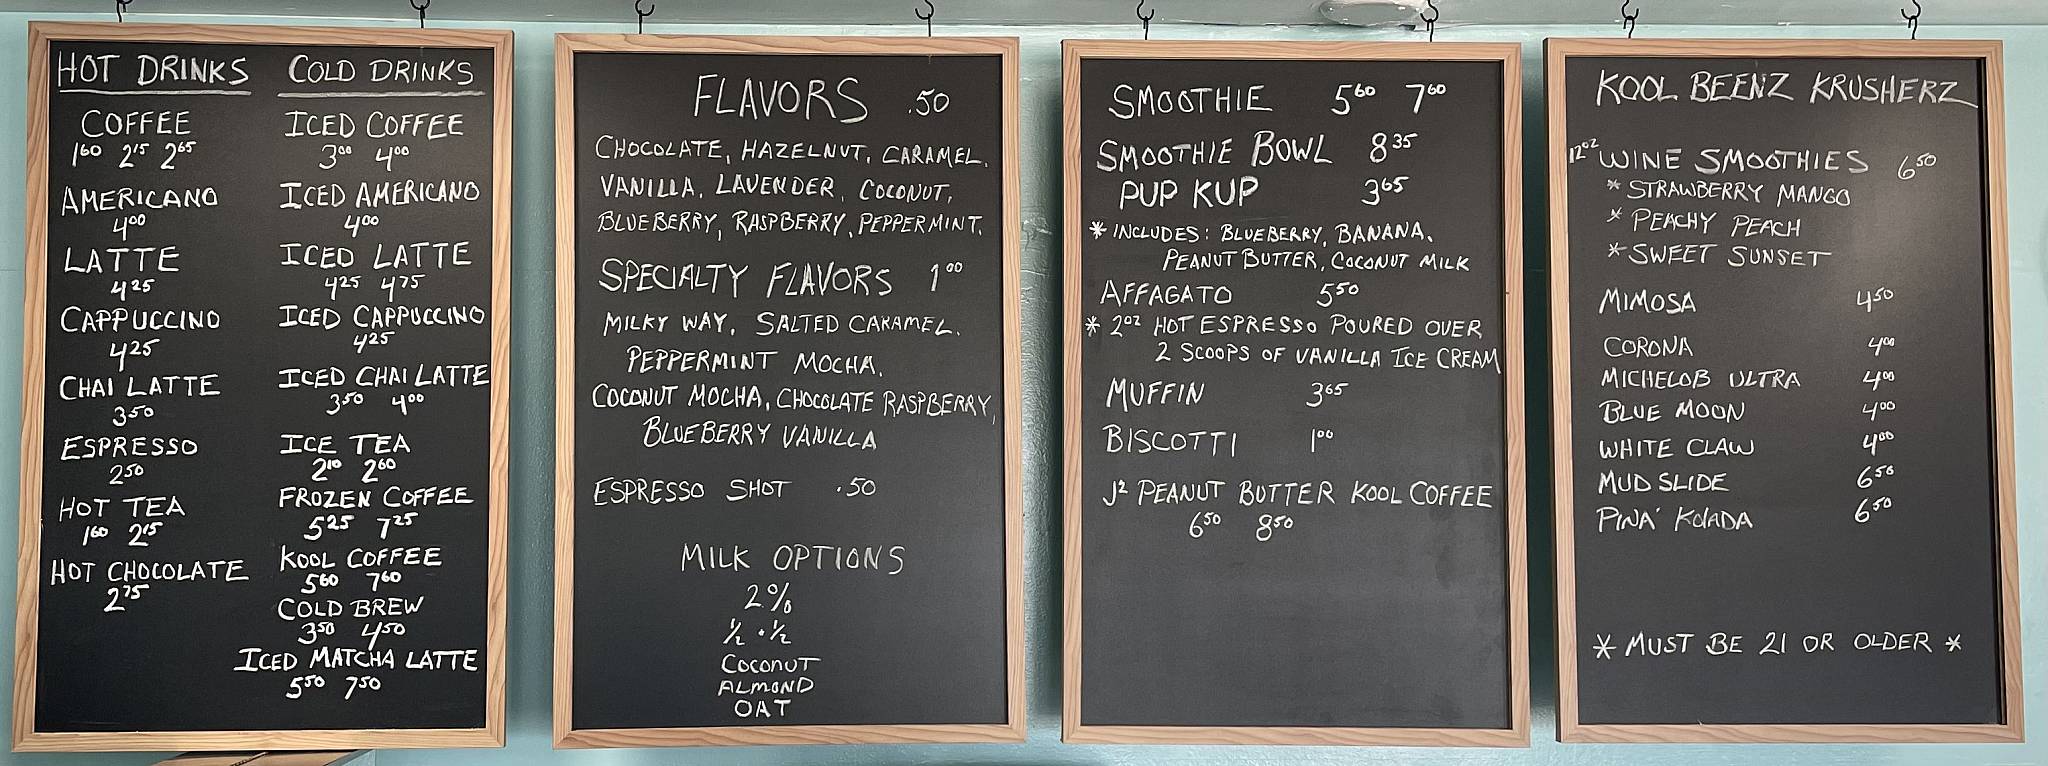 HOT DRINKS
COFFEE
1.60 2.15 2.65
AMERICANO
4.00
LATTE
4.25
CAPPUCCINO
4.25
CHAI LATTE
3.50
ESPRESSO
2.50
HOT TEA
1.60 2.15
HOT CHOCOLATE
2.75
COLD DRINKS
ICED COFFEE
3.00 4.00
ICED AMERICANO
4.00
ICED LATTE
4.25 4.75
ICED CAPPUCCINO
4.25
ICED CHAI LATTE
3.50 4.00
ICE TEA
2.10 2.60
FROZEN COFFEE
5.25 7.25
KOOL COFFEE
5.60 7.60
COLD BREW
3.50 4.50
ICED MATCHA LATTE
5.50 7.50
FLAVORS .50
CHOCOLATE, HAZELNUT, CARAMEL,
VANILLA, LAVENDER, COCONUT,
BLUEBERRY, RASPBERRY, PEPPERMINT,
SPECIALTY FLAVORS 1.00
MILKY WAY, SALTED CARAMEL,
PEPPERMINT MOCHA,
COCONUT MOCHA, CHOCOLATE RASPBERRY,
BLUEBERRY VANILLA
ESPRESSO SHOT .50
MILK OPTIONS
2%
½ · ½
COCONUT
ALMOND
OAT
SMOOTHIE 5.60 7.60
SMOOTHIE BOWL 8.35
PUP KUP 3.65
* INCLUDES: BLUEBERRY, BANANA,
PEANUT BUTTER, COCONUT MILK
AFFAGATO 5.50
* 2oz HOT ESPRESSO POURED OVER
2 SCOOPS OF VANILLA ICE CREAM
MUFFIN 3.65
BISCOTTI 1.00
J² PEANUT BUTTER KOOL COFFEE
6.50 8.50
KOOL BEENZ KRUSHERZ
12oz WINE SMOOTHIES 6.50
* STRAWBERRY MANGO
* PEACHY PEACH
* SWEET SUNSET
MIMOSA 4.50
CORONA 4.00
MICHELOB ULTRA 4.00
BLUE MOON 4.00
WHITE CLAW 4.00
MUDSLIDE 6.50
PINA' KOLADA 6.50
* MUST BE 21 OR OLDER *